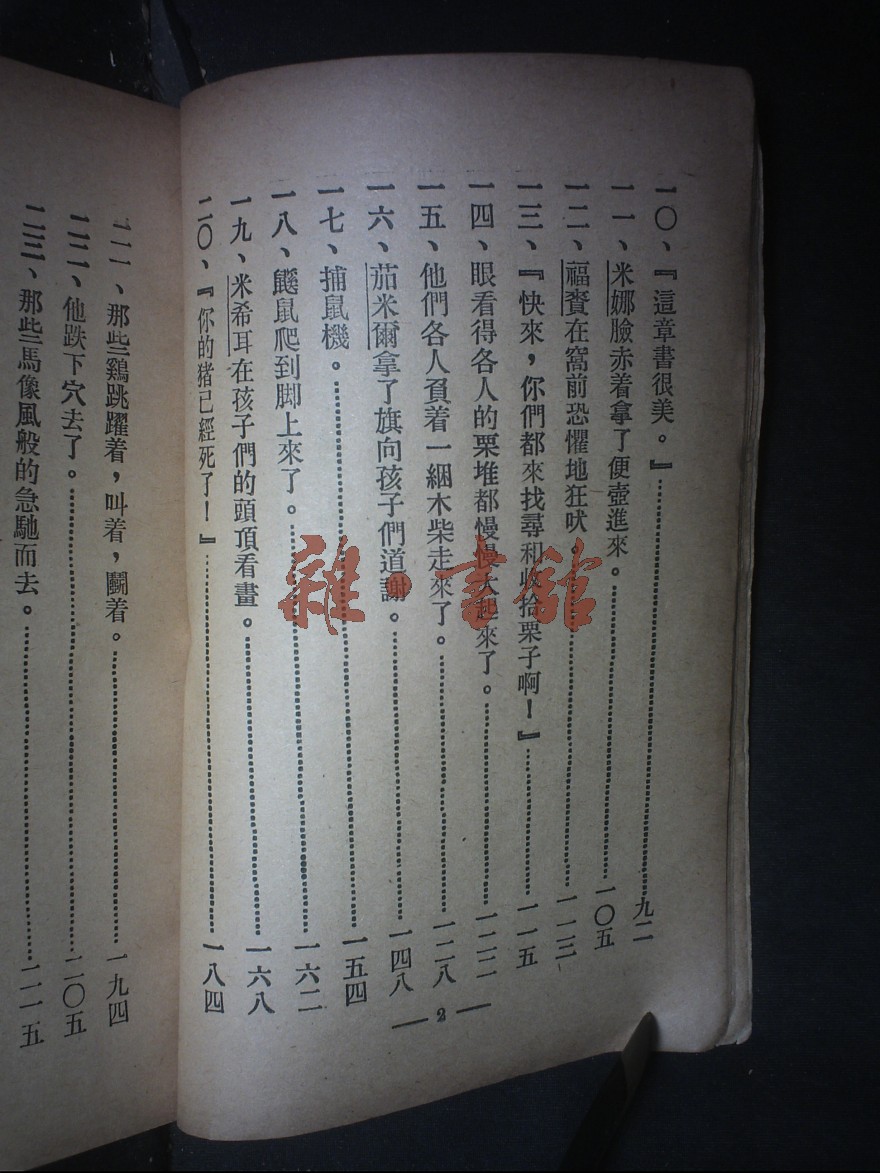 一〇、『這章書很美。』……九二
一一、米娜臉赤着拿了便壺進來。……一〇五
一二、福賚在窩前恐懼地狂吠。……一一三
一三、『快來，你們都來找尋和收拾栗子啊！』……一一五
一四、眼看得各人的栗堆都慢慢大起來了。……一二二
一五、他們各人負着一綑木柴走來了。……一二八
一六、茄米爾拿了旗向孩子們道謝。……一四八
一七、捕鼠機。……一五四
一八、鼷鼠爬到脚上來了。……一六二
一九、米希耳在孩子們的頭頂看畫。……一六八
二〇、『你的猪已經死了！』……一八四
— 2 —
二一、那些鷄跳躍着，叫着，鬭着。……一九四
二二、他跌下穴去了。……二〇五
二三、那些馬像風般的急馳而去。……二一五
雜·書館